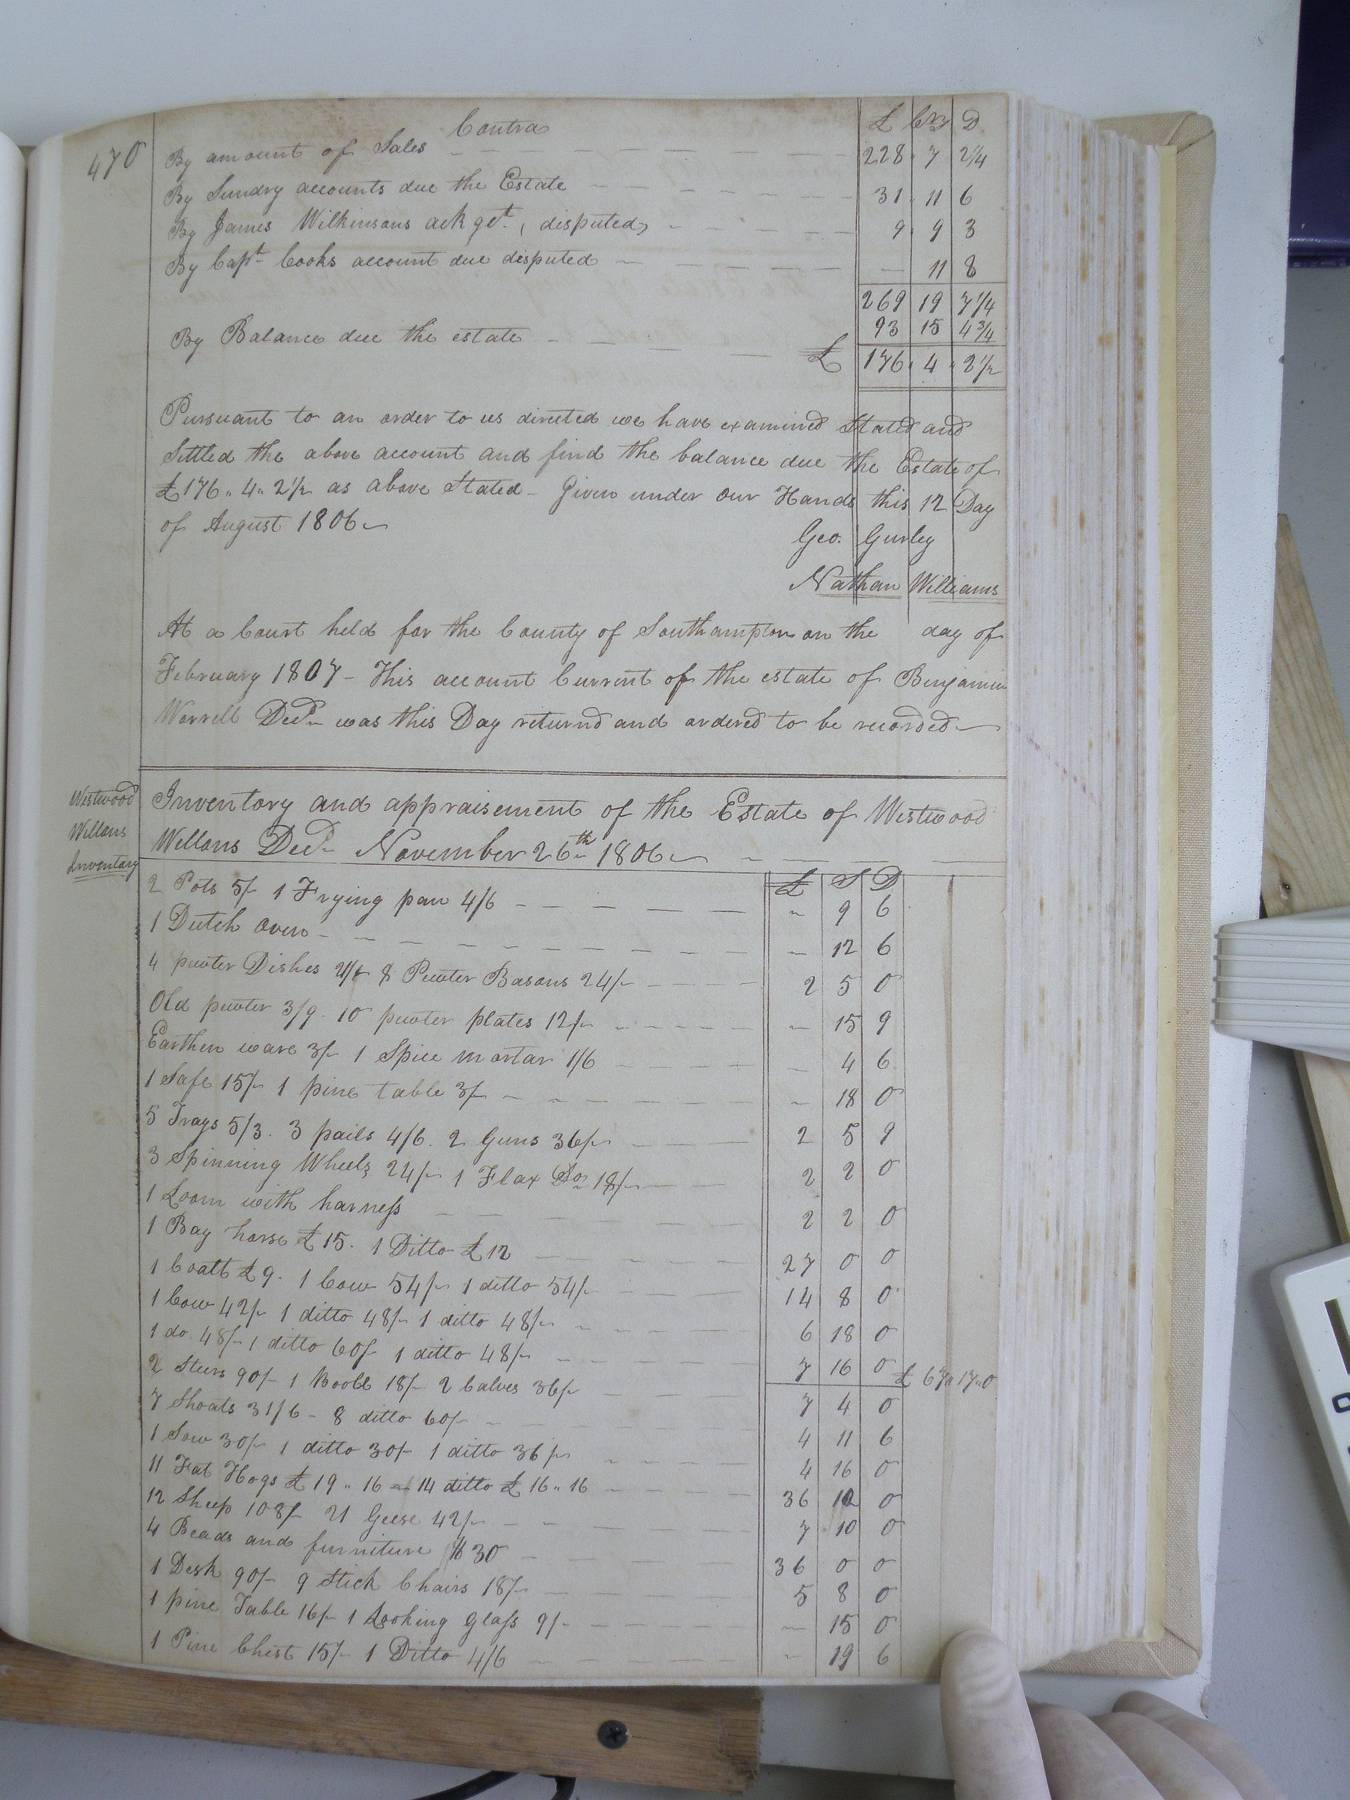 470
Contra £ S D
By amount of Sales 228 7 2 1/4
By Sundry accounts due the Estate 31 11 6
By James Wilkinsons ack gt, disputed, 9 9 3
By Capt Cooks account due disputed — 11 8
269 19 7 1/4
93 15 4 3/4
By Balance due the estate £ 176 4 2 1/2
Pursuant to an order to us directed we have examined Stated and
Settled the above account and find the balance due the Estate of
£176.. 4.. 2 1/2 as above Stated - Given under our Hands this 12 Day
of August 1806
Geo. Gurley
Nathan Williams
At a Court held for the County of Southampton on the day of
February 1807 - This account Current of the estate of Benjamin
Worrell Decd was this Day returnd and ordered to be recorded
Westwood
Wellons
Inventory
Inventory and appraisement of the Estate of Westwood
Wellons Decd November 26th 1806
£ S D
2 Pots 5/- 1 Frying pan 4/6 - 9 6
1 Dutch Oven - 12 6
4 pewter Dishes 21/- 8 Pewter Basons 24/- 2 5 0
Old pewter 3/9. 10 pewter plates 12/- - 15 9
Earthen ware 3/- 1 Spice mortar 1/6 - 4 6
1 Safe 15/- 1 pine table 3/- - 18 0
5 Trays 5/3. 3 pails 4/6. 2 Guns 36/- 2 5 9
3 Spinning Wheels 24/- 1 Flax Do 18/- 2 2 0
1 Loom with harness 2 2 0
1 Bay horse £15. 1 Ditto £12 27 0 0
1 Coalt £9. 1 Cow 54/- 1 ditto 54/- 14 8 0
1 Cow 42/- 1 ditto 48/- 1 ditto 48/- 6 18 0
1 do 48/- 1 ditto 60/- 1 ditto 48/- 7 16 0 £ 67..17..0
2 Steers 90/- 1 18/- 2 Calves 36/- 7 4 0
7 Shoats 31/6 - 8 ditto 60/- 4 11 6
1 Sow 30/- 1 ditto 30/- 1 ditto 36/- 4 16 0
11 Fat Hogs £19..16 - 14 ditto £16..16 36 12 0
12 Sheep 108/- 21 Geese 42/- 7 10 0
4 Beads and furniture 30 36 0 0
1 Desk 90/- 9 Stick Chairs 18/- 5 8 0
1 pine Table 16/- 1 Looking Glass 9/- - 15 0
1 Pine Chest 15/- 1 Ditto 4/6 - 19 6